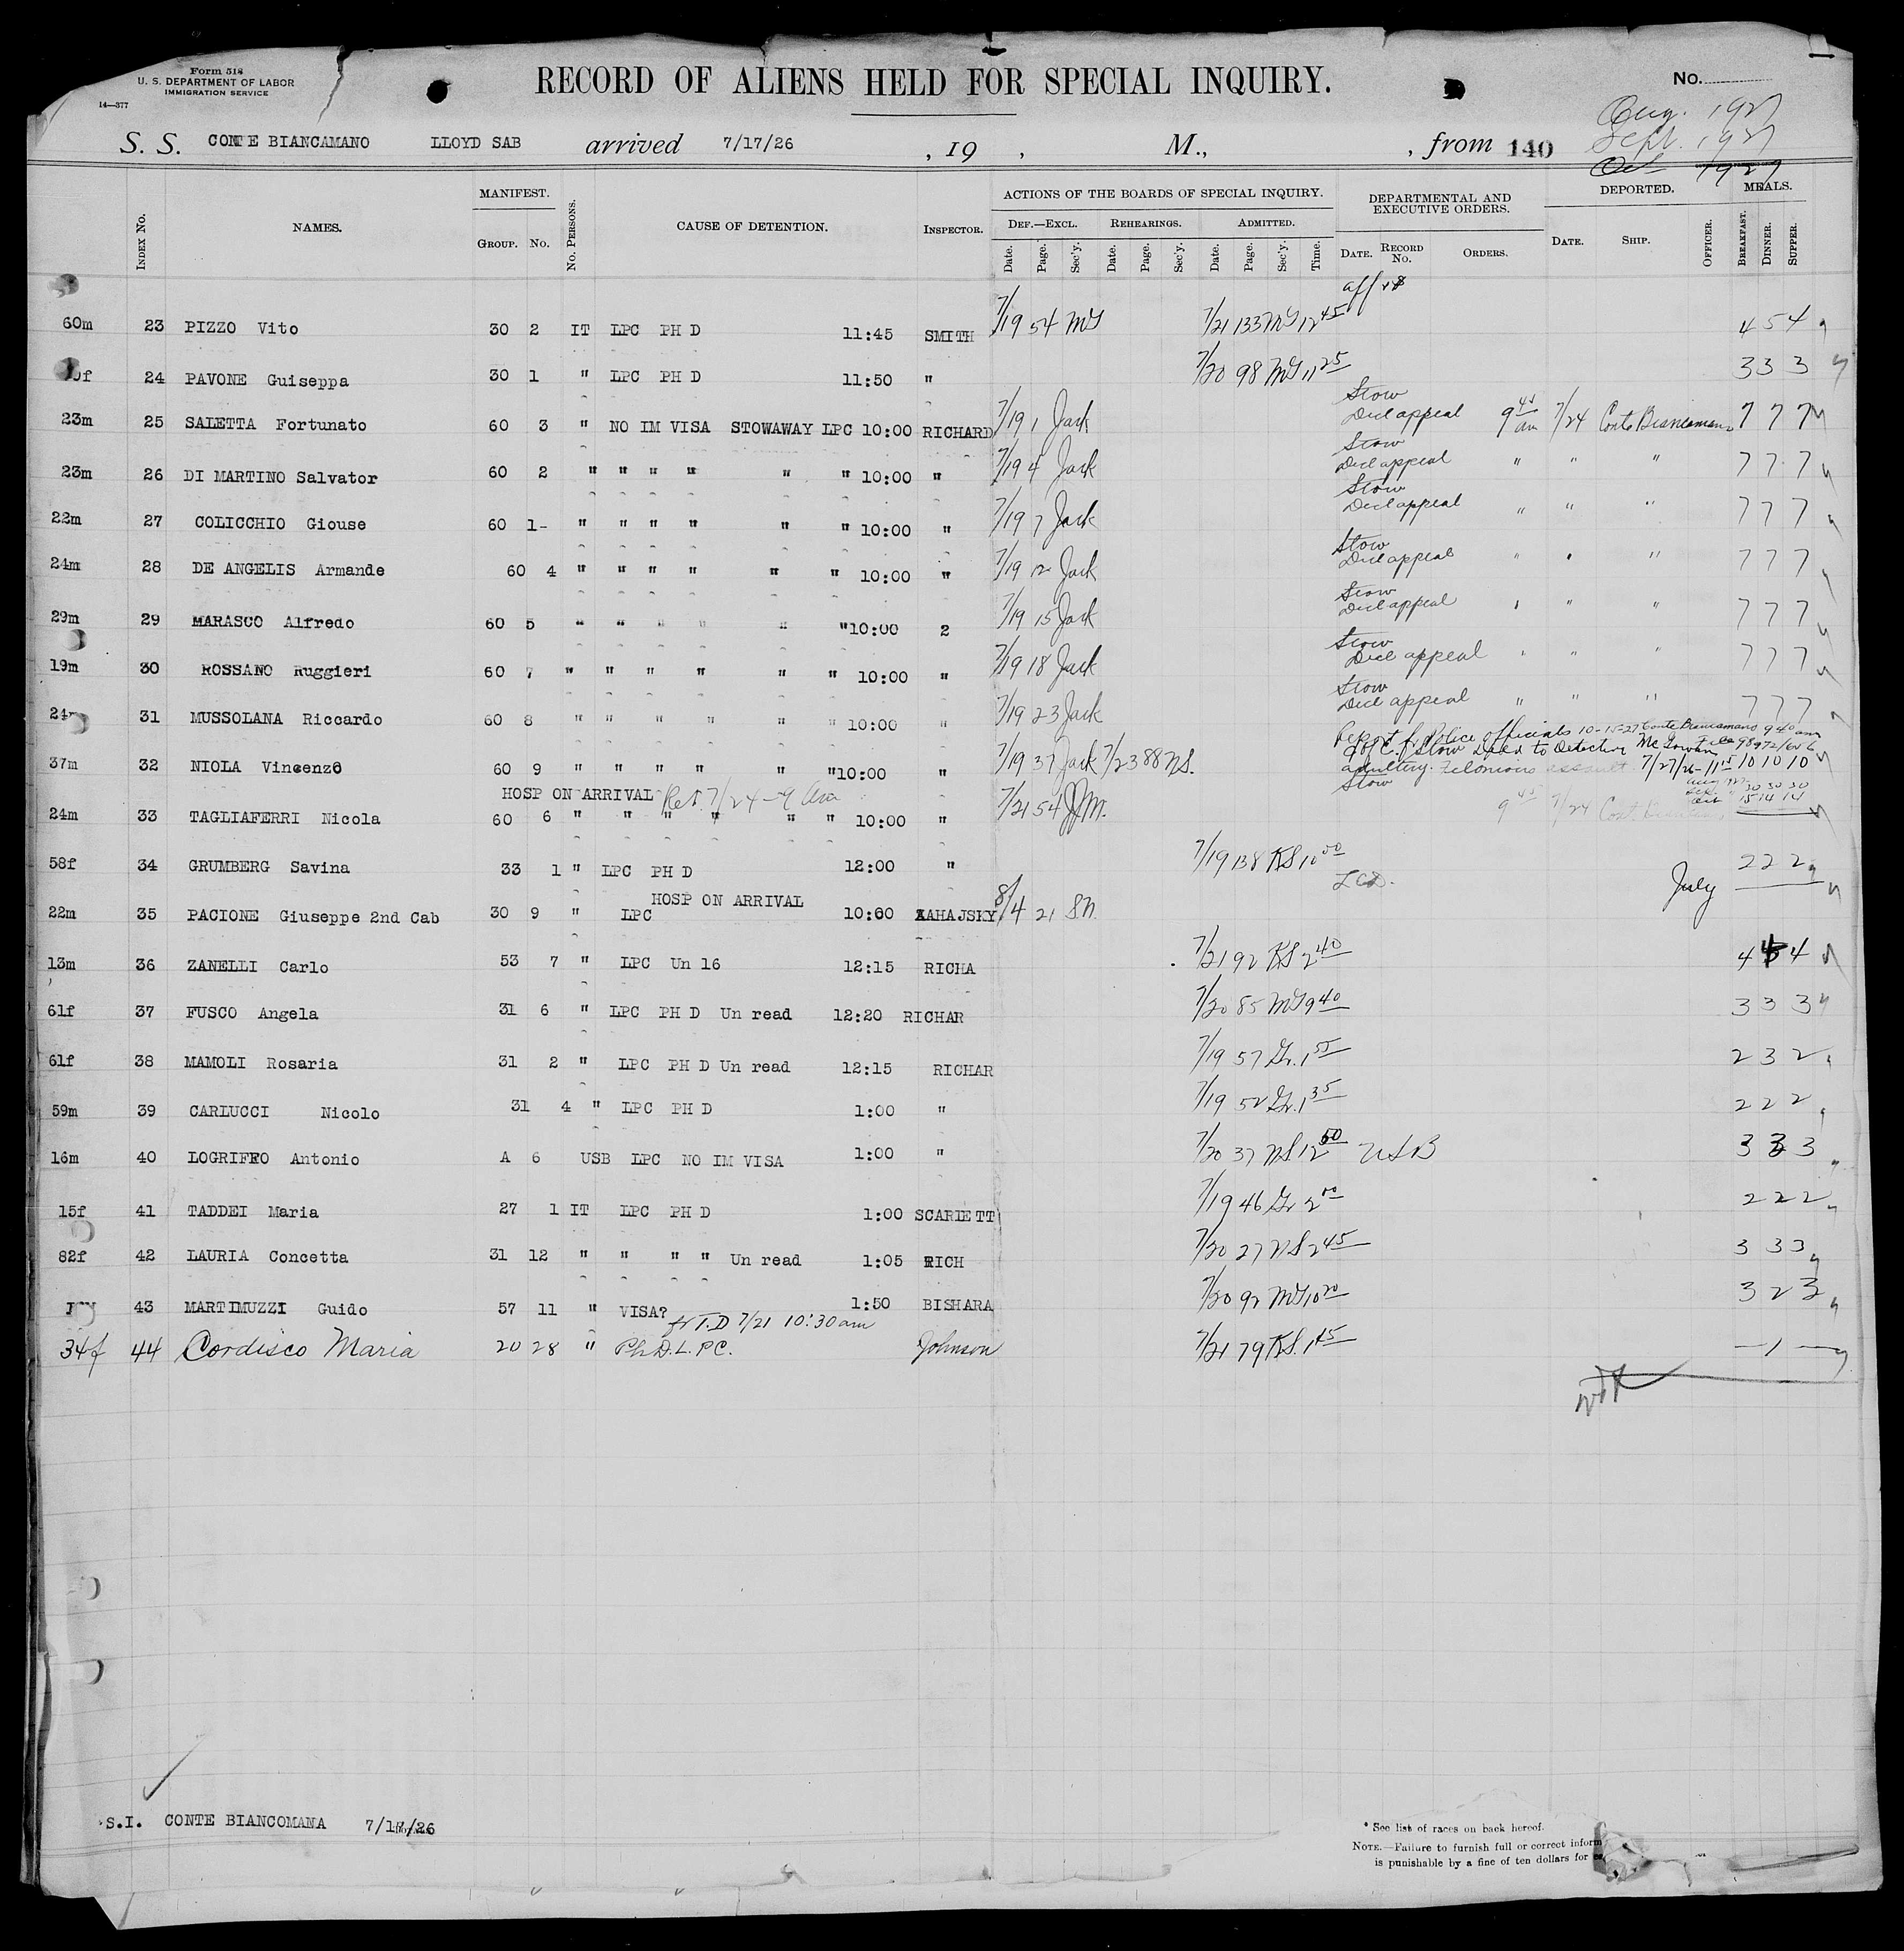 Form 518
U. S. DEPARTMENT OF LABOR
IMMIGRATION SERVICE
14—377
RECORD OF ALIENS HELD FOR SPECIAL INQUIRY.
No.
Aug. 1927
Sept. 1927
Oct 1927
S. S. CONTE BIANCAMANO LLOYD SAB arrived 7/17/26 , 19 , M., , from 140
Index No. NAMES. MANIFEST. Group. No. No. Persons. CAUSE OF DETENTION. Inspector. ACTIONS OF THE BOARDS OF SPECIAL INQUIRY. Def.—Excl. Date. Page. Sec'y. Rehearings. Date. Page. Sec'y. Admitted. Date. Page. Sec'y. Time. DEPARTMENTAL AND EXECUTIVE ORDERS. Date. Record No. Orders. DEPORTED. Date. Ship. Officer. MEALS. Breakfast. Dinner. Supper.
60m 23 PIZZO Vito 30 2 IT LPC PH D 11:45 SMITH 7/19 54 MG 7/21 133 MG 12 45 4 5 4
24 PAVONE Guiseppa 30 1 " LPC PH D 11:50 " 7/20 98 MG 11 25 3 3 3
23m 25 SALETTA Fortunato 60 3 " NO IM VISA STOWAWAY LPC 10:00 RICHARD 7/19 1 Jack Stow Decl appeal 9 45 am 7/24 Conte Biancamano 7 7 7
23m 26 DI MARTINO Salvator 60 2 " " " " " " 10:00 " 7/19 4 Jack Stow Decl appeal " " " 7 7 7
22m 27 COLICCHIO Giouse 60 1- " " " " " " 10:00 " 7/19 7 Jack Stow Decl appeal " " " 7 7 7
24m 28 DE ANGELIS Armande 60 4 " " " " " " 10:00 " 7/19 12 Jack Stow Decl appeal " " " 7 7 7
29m 29 MARASCO Alfredo 60 5 " " " " " " 10:00 2 7/19 15 Jack Stow Decl appeal " " " 7 7 7
19m 30 ROSSANO Ruggieri 60 7 " " " " " " 10:00 " 7/19 18 Jack Stow Decl appeal " " " 7 7 7
31 MUSSOLANA Riccardo 60 8 " " " " " " 10:00 " 7/19 23 Jack Stow Decl appeal " " " 7 7 7
Report f. Police officials 10-15-27 Conte Biancamano 9 40 am
37m 32 NIOLA Vincenzo 60 9 " " " " " " 10:00 " 7/19 37 Jack 7/23 88 NS. Stow to Detective McGowan adultery. Felonious assault 7/27/26 - 11 15 10 10 10
Stow
30 30 30
15 14 14
HOSP ON ARRIVAL Ret 7/24 - 9 am
24m 33 TAGLIAFERRI Nicola 60 6 " " " " " " 10:00 " 7/21 54 JJM. 9 45 7/24
58f 34 GRUMBERG Savina 33 1 " LPC PH D 12:00 " 7/19 138 KS 10 00 2 2 2
July
HOSP ON ARRIVAL
22m 35 PACIONE Giuseppe 2nd Cab 30 9 " LPC 10:00 ZAHAJSKY 8/4 21 SN.
13m 36 ZANELLI Carlo 53 7 " LPC Un 16 12:15 RICHA 7/21 92 KS 2 40 4 4 4
61f 37 FUSCO Angela 31 6 " LPC PH D Un read 12:20 RICHAR 7/20 85 MG 9 40 3 3 3
61f 38 MAMOLI Rosaria 31 2 " LPC PH D Un read 12:15 RICHAR 7/19 57 Gr. 1 55 2 3 2
59m 39 CARLUCCI Nicolo 31 4 " LPC PH D 1:00 " 7/19 52 Gr. 1 35 2 2 2
16m 40 LOGRIFFO Antonio A 6 USB LPC NO IM VISA 1:00 " 7/20 37 NS 12 50 USB 3 3 3
15f 41 TADDEI Maria 27 1 IT LPC PH D 1:00 SCARLETT 7/19 46 Gr 2 00 2 2 2
82f 42 LAURIA Concetta 31 12 " " " " Un read 1:05 RICH 7/20 27 NS 2 45 3 3 3
43 MARTIMUZZI Guido 57 11 " VISA? 1:50 BISHARA 7/20 92 MG 10 20 3 2 3
fr T.D 7/21 10:30 am
34f 44 Cordisco Maria 20 28 " Ph D. L.P.C. Johnson 7/21 79 KS. 1 45 — 1 —
S.I. CONTE BIANCOMANA 7/17/26
* See list of races on back hereof.
Note.—Failure to furnish full or correct inform
is punishable by a fine of ten dollars for